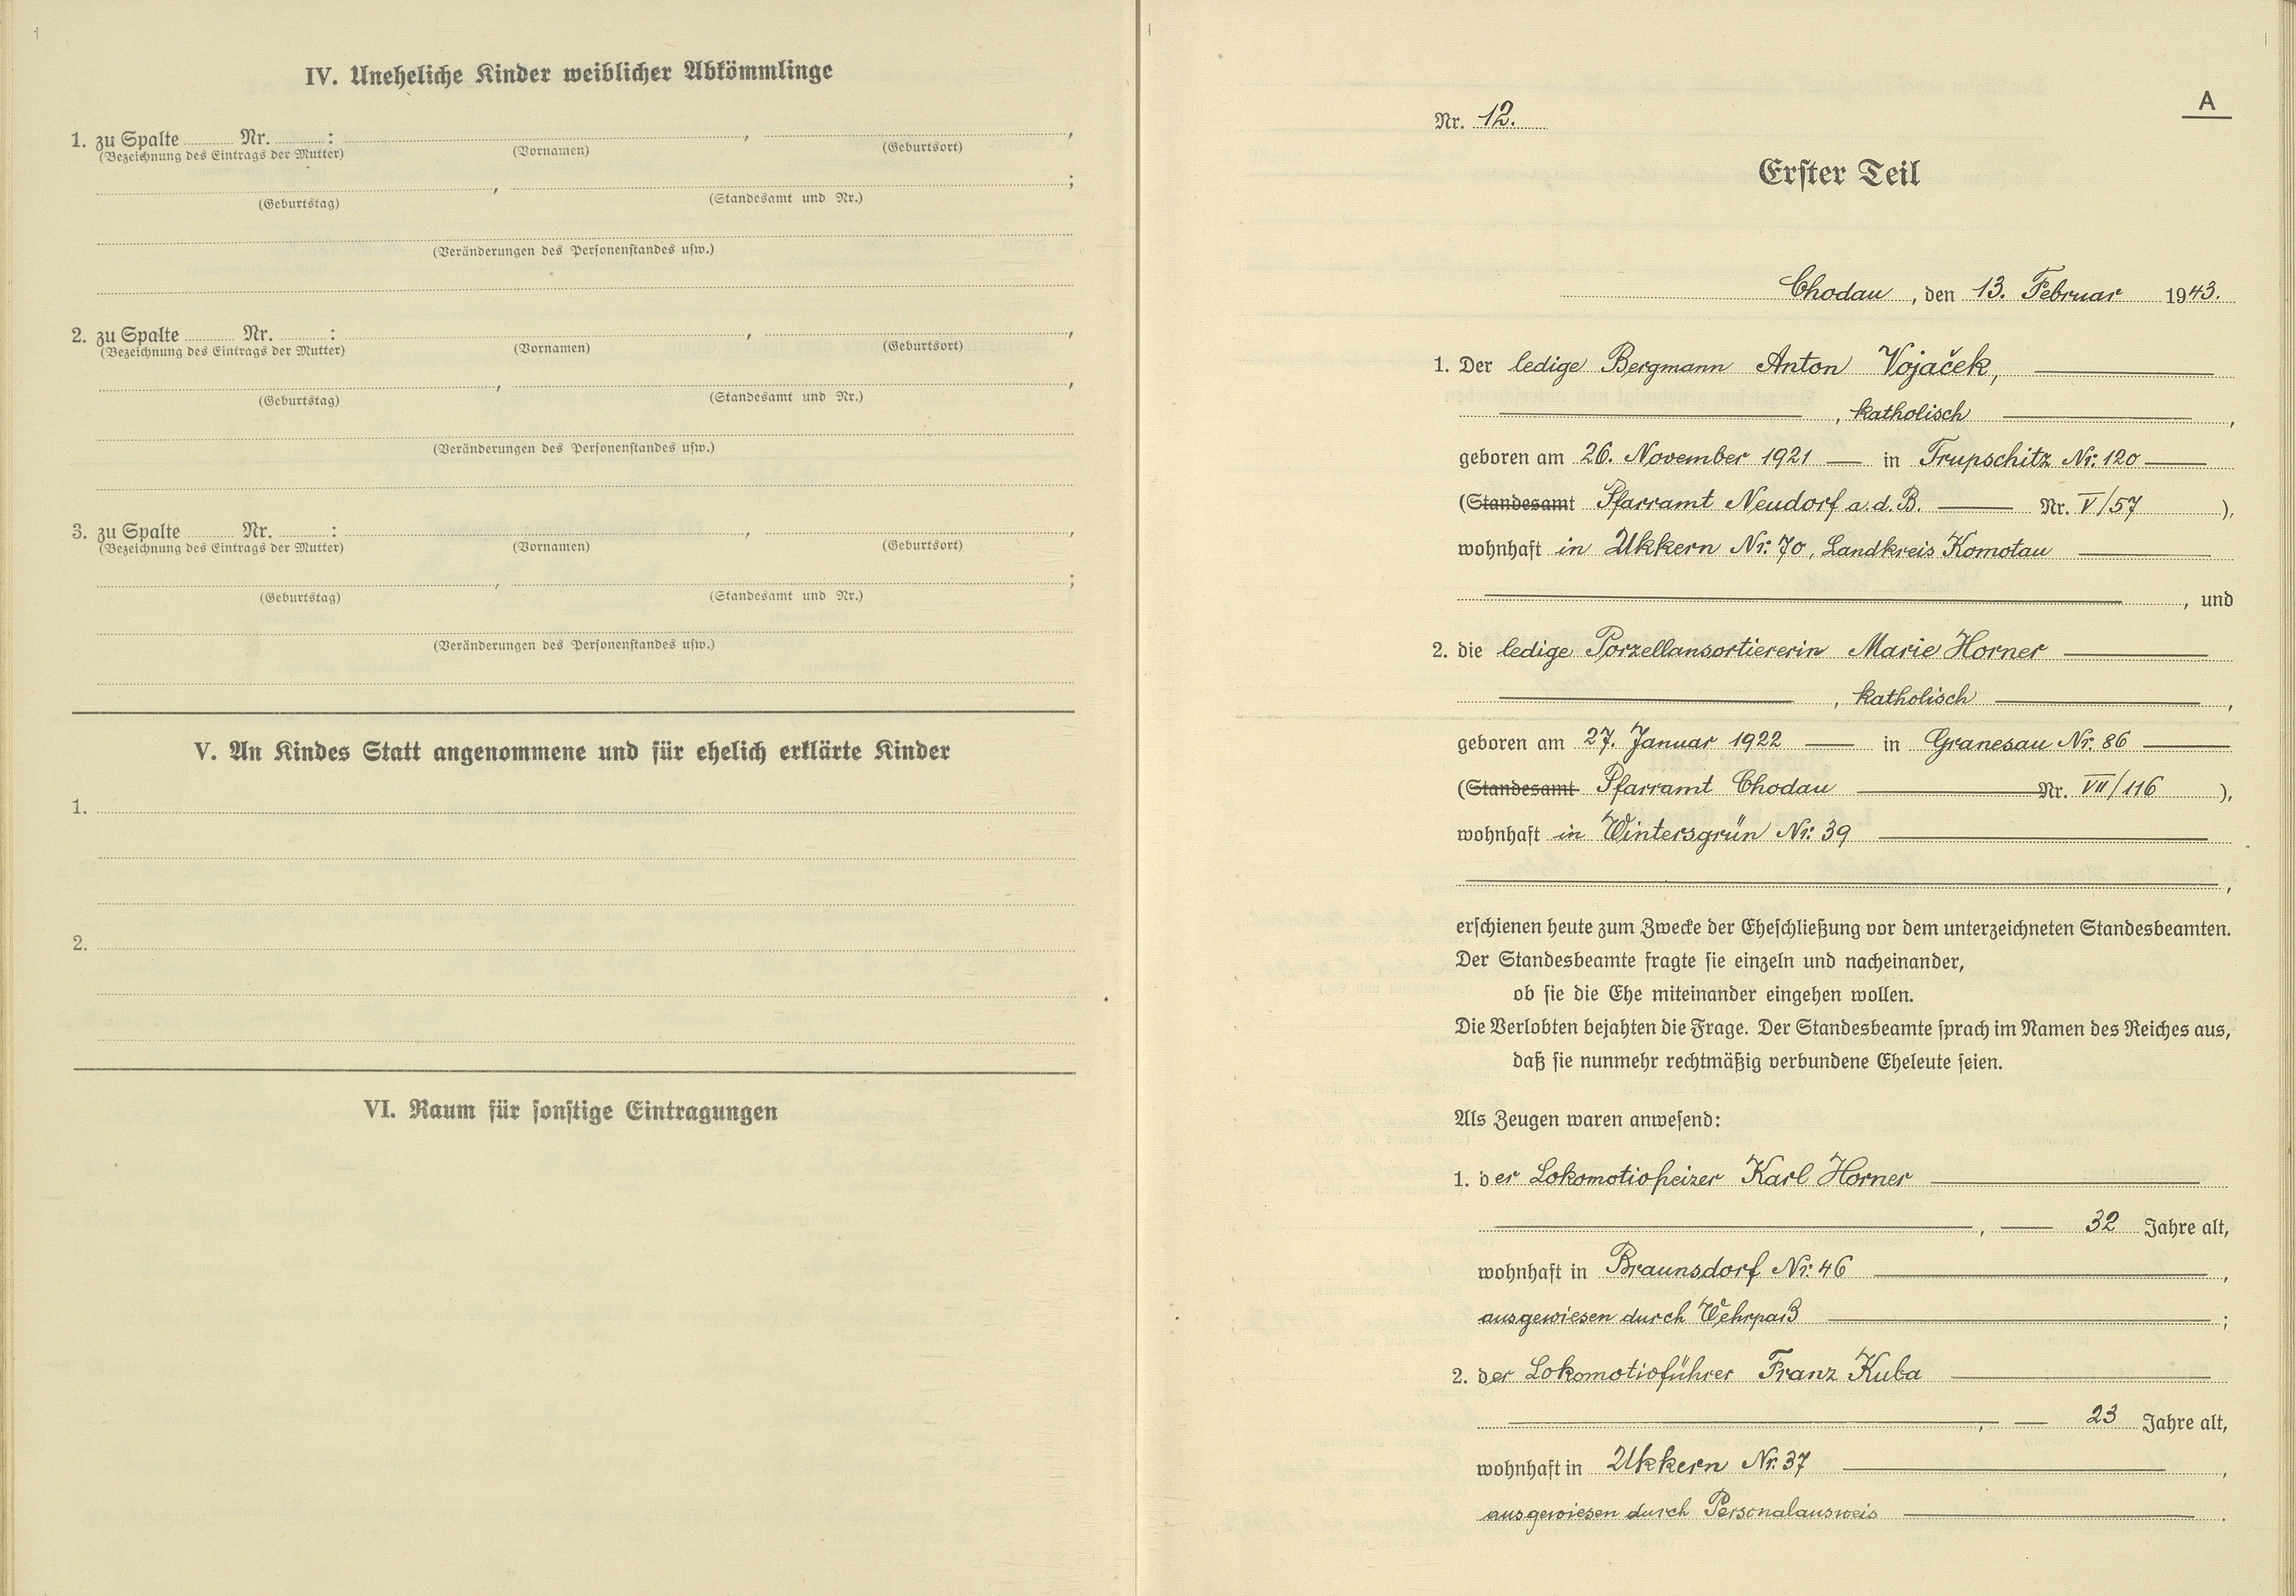 IV. Uneheliche Kinder weiblicher Abkömmlinge
1. zu Spalte Nr. : , ,
(Bezeichnung des Eintrags der Mutter) (Vornamen) (Geburtsort)
, ;
(Geburtstag) (Standesamt und Nr.)
(Veränderungen des Personenstandes usw.)
2. zu Spalte Nr. : , ,
(Bezeichnung des Eintrags der Mutter) (Vornamen) (Geburtsort)
, ,
(Geburtstag) (Standesamt und Nr.)
(Veränderungen des Personenstandes usw.)
3. zu Spalte Nr. : , ,
(Bezeichnung des Eintrags der Mutter) (Vornamen) (Geburtsort)
, ;
(Geburtstag) (Standesamt und Nr.)
(Veränderungen des Personenstandes usw.)
V. An Kindes Statt angenommene und für ehelich erklärte Kinder
1.
2.
VI. Raum für sonstige Eintragungen
A
Nr. 12.
Erster Teil
Chodau, den 13. Februar 1943.
1. Der ledige Bergmann Anton Vojaček,
, katholisch ,
geboren am 26. November 1921 — in Trupschitz Nr. 120 —
(Standesamt Pfarramt Neudorf a.d.B. — Nr. V/57 ),
wohnhaft in Ukkern Nr. 70, Landkreis Komotau —
, und
2. die ledige Porzellansortiererin Marie Horner —
, katholisch ,
geboren am 27. Januar 1922 — in Granesau Nr. 86 —
(Standesamt Pfarramt Chodau — Nr. VII/116 ),
wohnhaft in Wintersgrün Nr. 39 —
,
erschienen heute zum Zwecke der Eheschließung vor dem unterzeichneten Standesbeamten.
Der Standesbeamte fragte sie einzeln und nacheinander,
ob sie die Ehe miteinander eingehen wollen.
Die Verlobten bejahten die Frage. Der Standesbeamte sprach im Namen des Reiches aus,
daß sie nunmehr rechtmäßig verbundene Eheleute seien.
Als Zeugen waren anwesend:
1. der Lokomotivheizer Karl Horner —
, — 32 Jahre alt,
wohnhaft in Braunsdorf Nr. 46 — ,
ausgewiesen durch Wehrpaß — ;
2. der Lokomotivführer Franz Kuba —
, — 23 Jahre alt,
wohnhaft in Ukkern Nr. 37 — ,
ausgewiesen durch Personalausweis — .